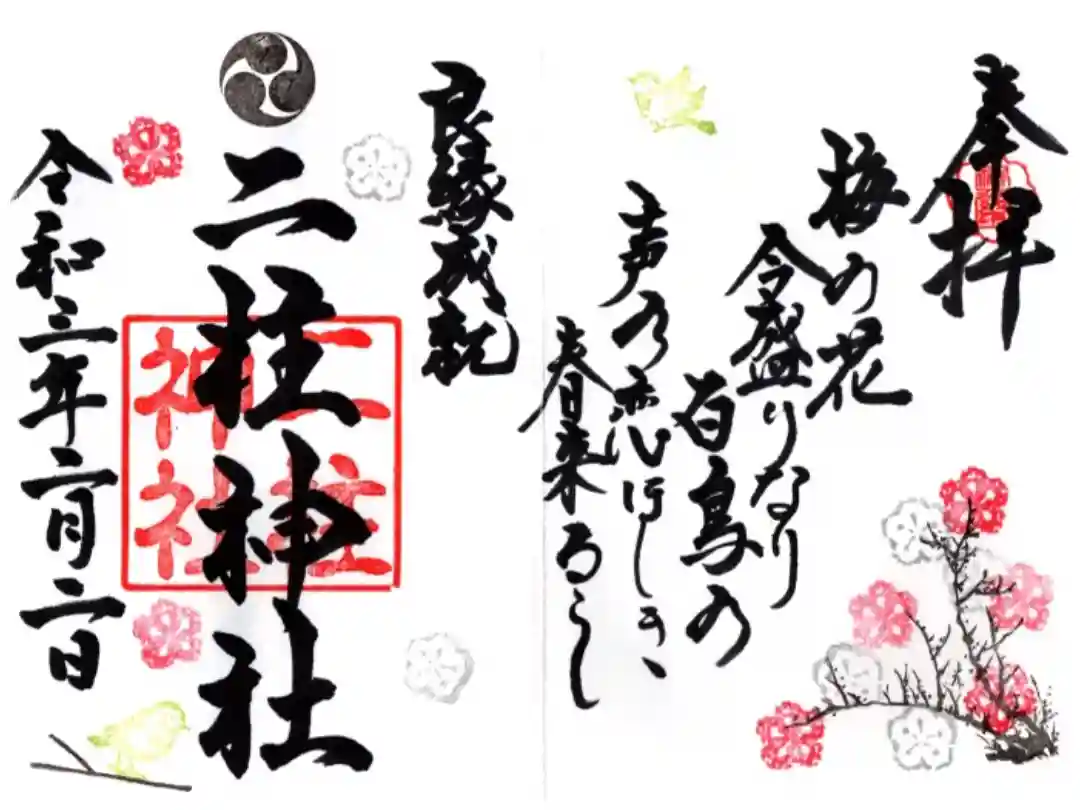 奉拝
梅の花
今盛りなり
百鳥の
声の恋ほしき
春来るらし
良縁成就
二柱神社
二柱
神社
令和三年二月二日